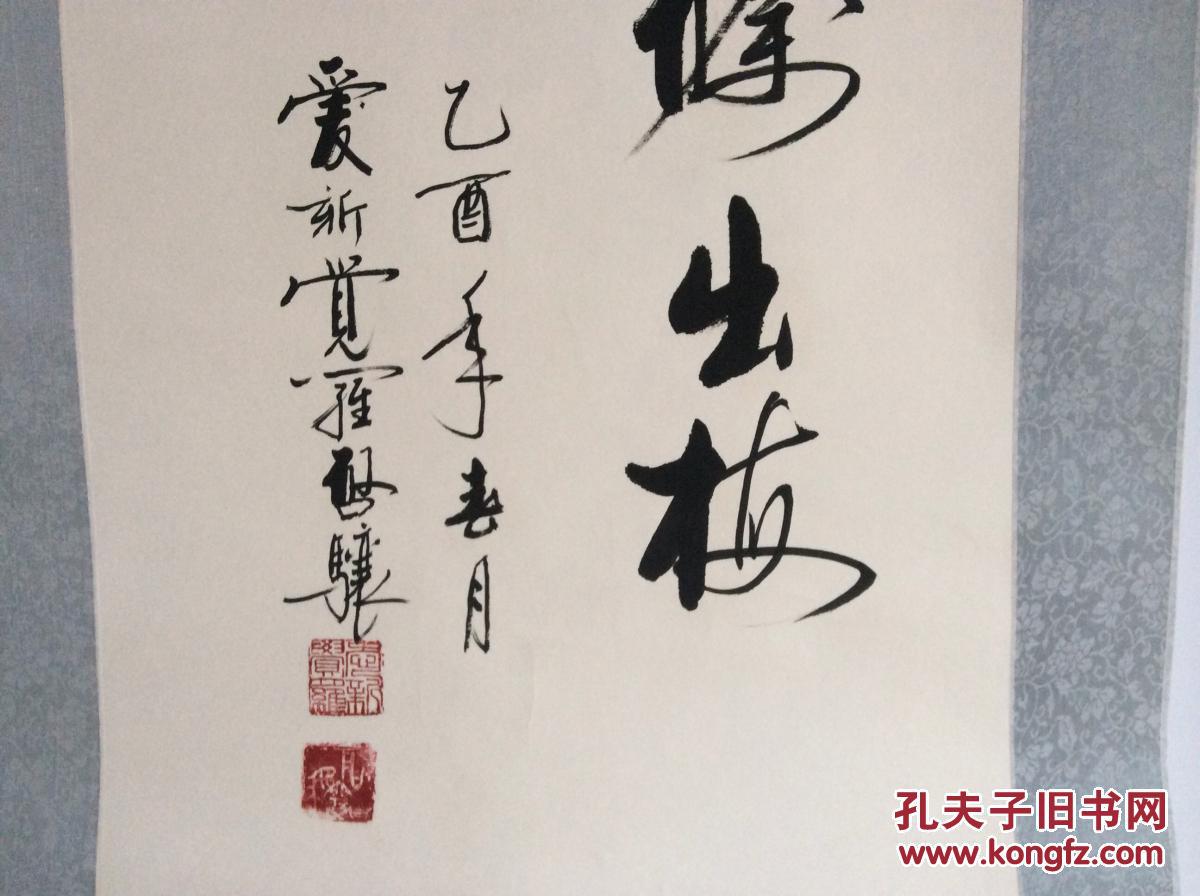 出梅
乙酉年春月
愛新覺羅啟驤
愛新覺羅
孔夫子旧书网
www.kongfz.com